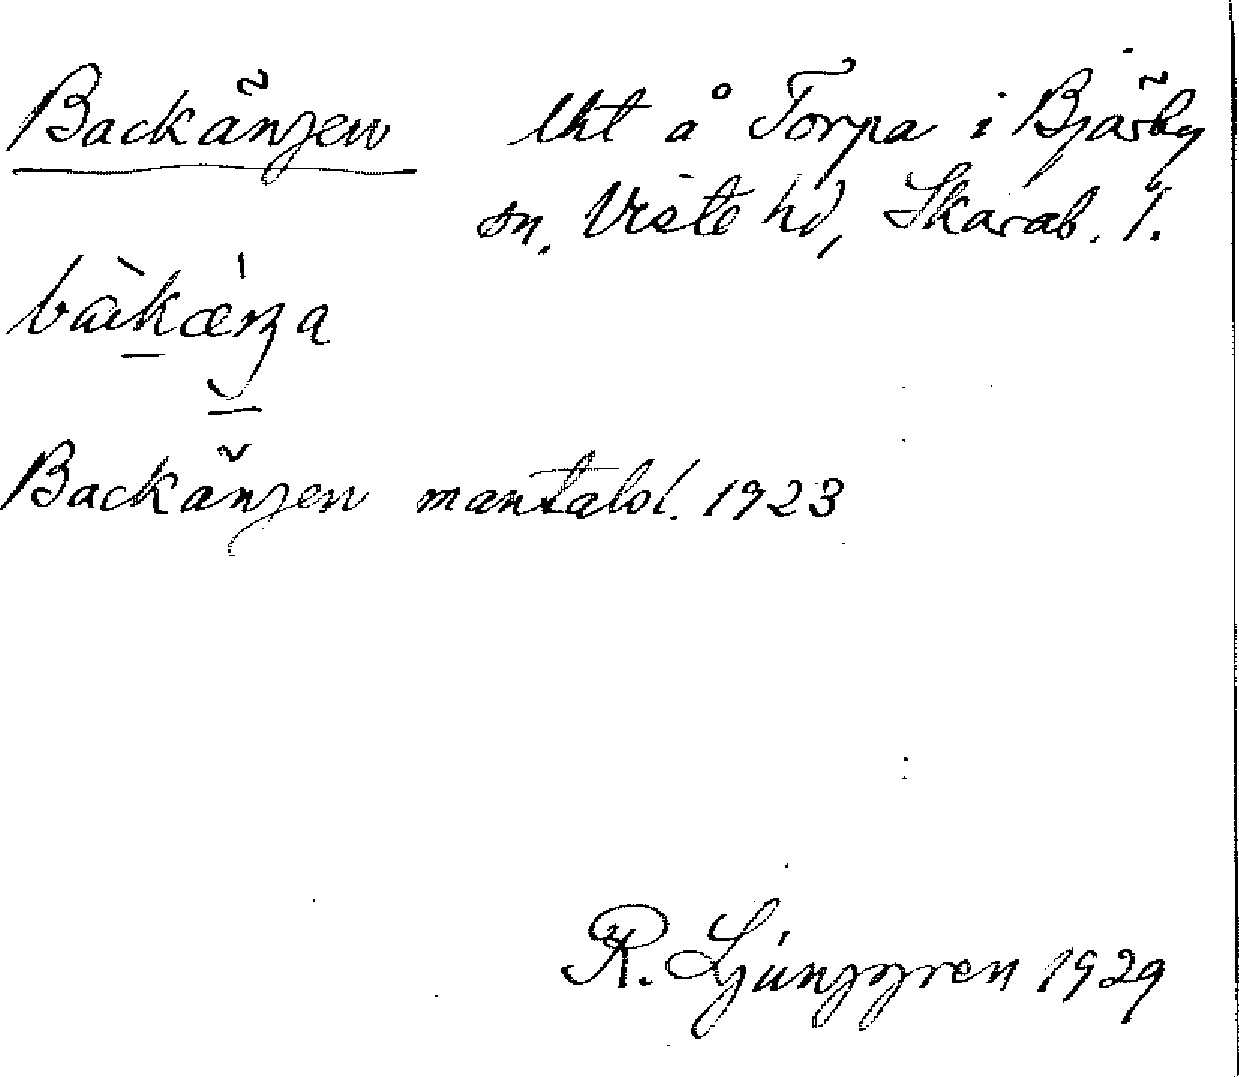 Backängen lht å Torpa i Bjärby
sn, Viste hd, Skarab. l.
Backängen mantalsl. 1923
R. Ljunggren 1929